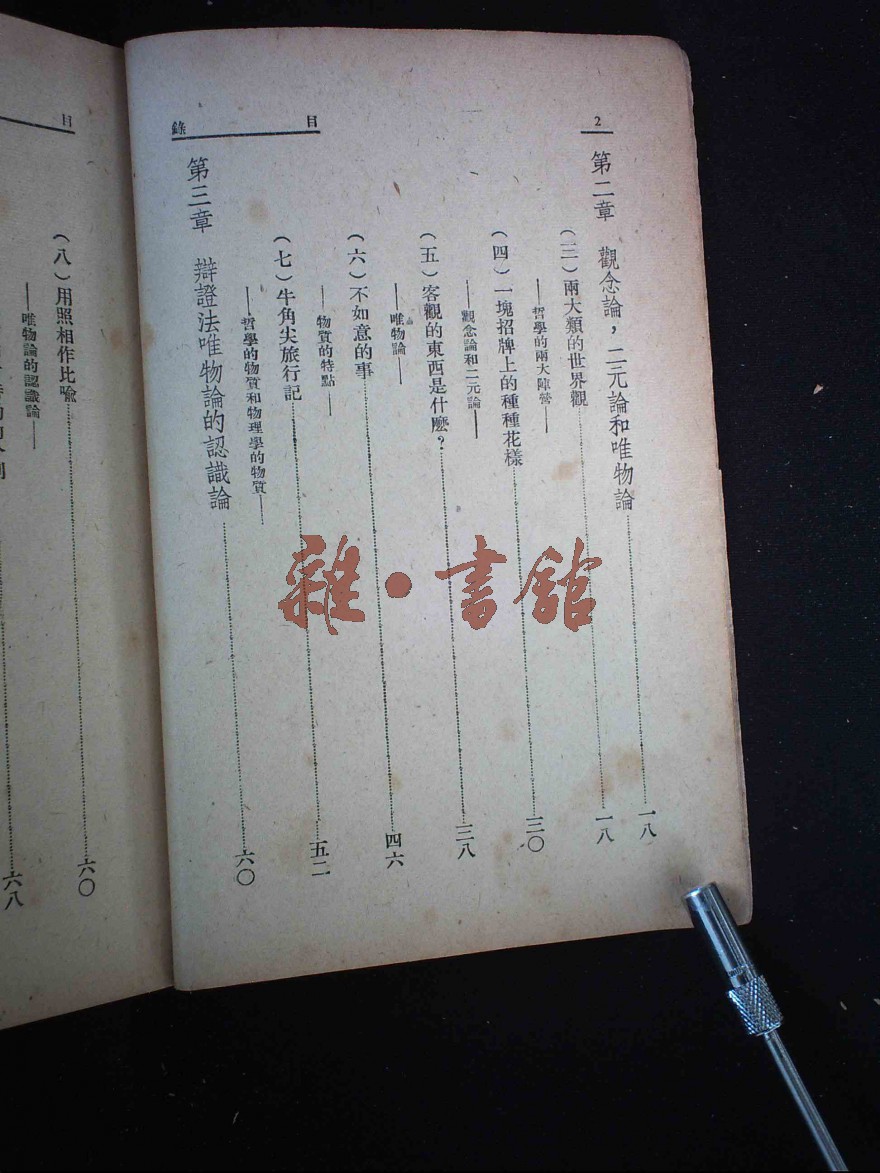 2
目錄
第二章　觀念論，二元論和唯物論……一八
（三）兩大類的世界觀……一八
——哲學的兩大陣營——
（四）一塊招牌上的種種花樣……三〇
——觀念論和二元論——
（五）客觀的東西是什麼？……三八
——唯物論——
（六）不如意的事……四六
——物質的特點——
（七）牛角尖旅行記……五二
——哲學的物質和物理學的物質——
第三章　辯證法唯物論的認識論……六〇
目
（八）用照相作比喩……六〇
——唯物論的認識論——
六八
雜·書館